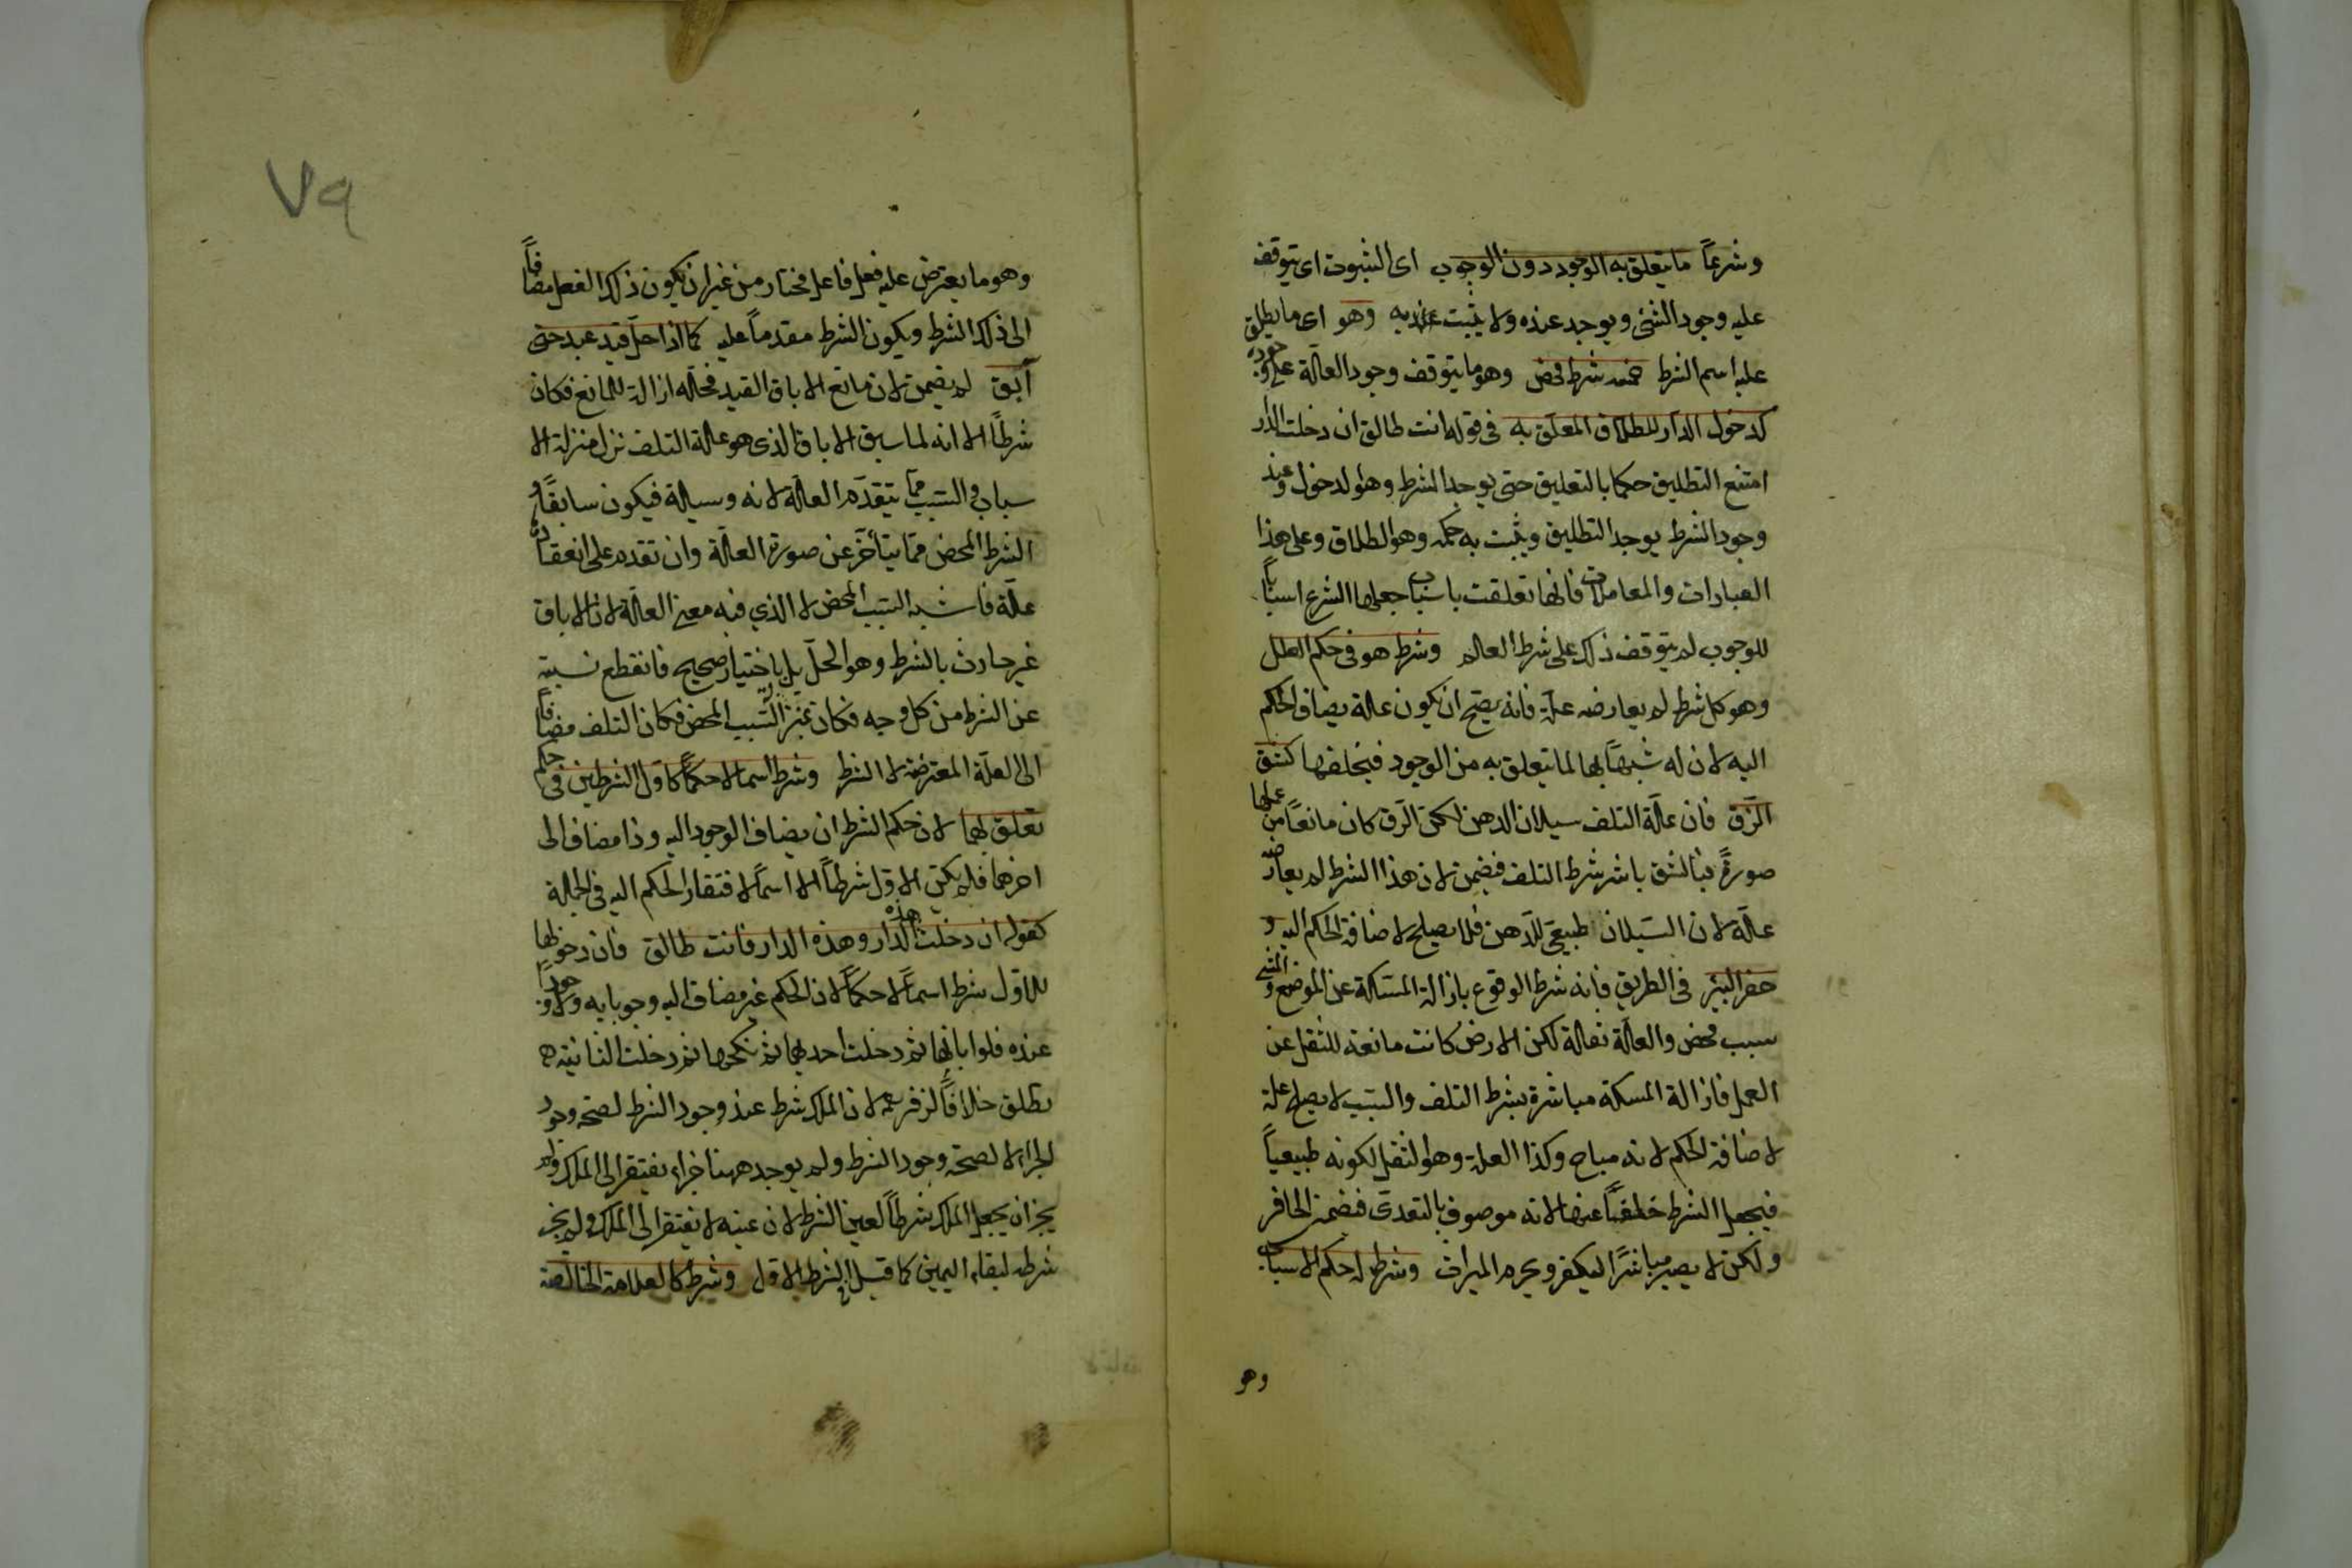 وشرعاً ما يتعلق به الوجود دون الوجوب اى الثبوت اى يتوقف
عليه وجود الشئ ويوجد عنده ولا يثبت به وهو اى ما يطلق
عليه اسم الشرط خمسة شرط محض وهو ما يتوقف وجود العلة على وجوده
كدخول الدار للطلاق المعلق به فى قوله انت طالق ان دخلت الدار
امتنع التطليق حكما بالتعليق حتى يوجد الشرط وهو الدخول وعند
وجود الشرط يوجد التطليق ويثبت به حكمه وهو الطلاق وعلى هذا
العبادات والمعاملات فانها تعلقت باسباب جعلها الشرع اسباباً
للوجوب لم يتوقف ذلك على شرط العلم وشرط هو فى حكم العلل
وهو كل شرط لم يعارضه علة فانه يصح ان يكون علة يضاف الحكم
اليه لان له شبهاً بها لما يتعلق به من الوجود فيخلفها كشق
الزق فان علة التلف سيلان الدهن لكن الزق كان مانعاً من عملها
صورةً فبالشق باشر شرط التلف فضمن لان هذا الشرط لم يعارضه
علة لان السيلان طبيعى للدهن فلا يصلح لاضافة الحكم اليه و
حفر البئر فى الطريق فانه شرط الوقوع بازالة المسكة عن الموضع والمشى
سبب محض والعلة ثقله لكن الارض كانت مانعة للثقل عن
العمل فازالة المسكة مباشرة بشرط التلف والسبب لا يصلح علة
لاضافة الحكم لانه مباح وكذا العلة وهو الثقل لكونه طبيعياً
فيجعل الشرط خلفاً عنها لانه موصوف بالتعدى فضمن الحافر
ولكن لا يصير مباشرًا ليكفر ويحرم الميراث وشرط له حكم الاسباب
وهو
٧٩
وهو ما يعترض عليه فعل فاعل مختار من غير ان يكون ذلك الفعل مضافاً
الى ذلك الشرط ويكون الشرط مقدماً عليه كما اذا حل قيد عبد حتى
آبق لم يضمن لان مانع الاباق القيد فحله ازالة للمانع فكان
شرطاً الا انه لما سبق الاباق الذى هو علة التلف نزل منزلة الا
سباب فالسبب مما يتقدم العلة لانه وسيلة فيكون سابقاً و
الشرط المحض مما يتأخر عن صورة العلة وان تقدم على انعقاده
علة فاشبه السبب المحض لا الذي فيه معنى العلة لان الاباق
غير حادث بالشرط وهو الحل بل باختيار صحيح فانقطع نسبته
عن الشرط من كل وجه فكان بمنزلة السبب المحض فكان التلف مضافاً
الى العلة المعترضة لا الشرط وشرط اسما لا حكماً كاول الشرطين فى حكم
تعلق بهما لان حكم الشرط ان يضاف الوجود اليه وذا مضاف الى
اخرهما فلم يكن الاول شرطاً الا اسماً لافتقار الحكم اليه فى الجملة
كقوله ان دخلت هذه الدار وهذه الدار فانت طالق فان دخولها
للاول شرط اسماً لا حكماً لان الحكم غير مضاف اليه وجوبا به ولا وجوداً
عنده فلو ابانها ثم دخلت احديهما ثم نكحها ثم دخلت الثانية
تطلق خلافاً لزفر لان الملك شرط عند وجود الشرط لصحة وجود
الجزاء لا لصحة وجود الشرط ولم يوجد ههنا جزاء يفتقر الى الملك ولم
يجز ان يجعل الملك شرطاً لعين الشرط لان عينه لا يفتقر الى الملك ولم يجز
شرطه لبقاء اليمين كما قبل الشرط الاول وشرط كالعلامة الخالصة